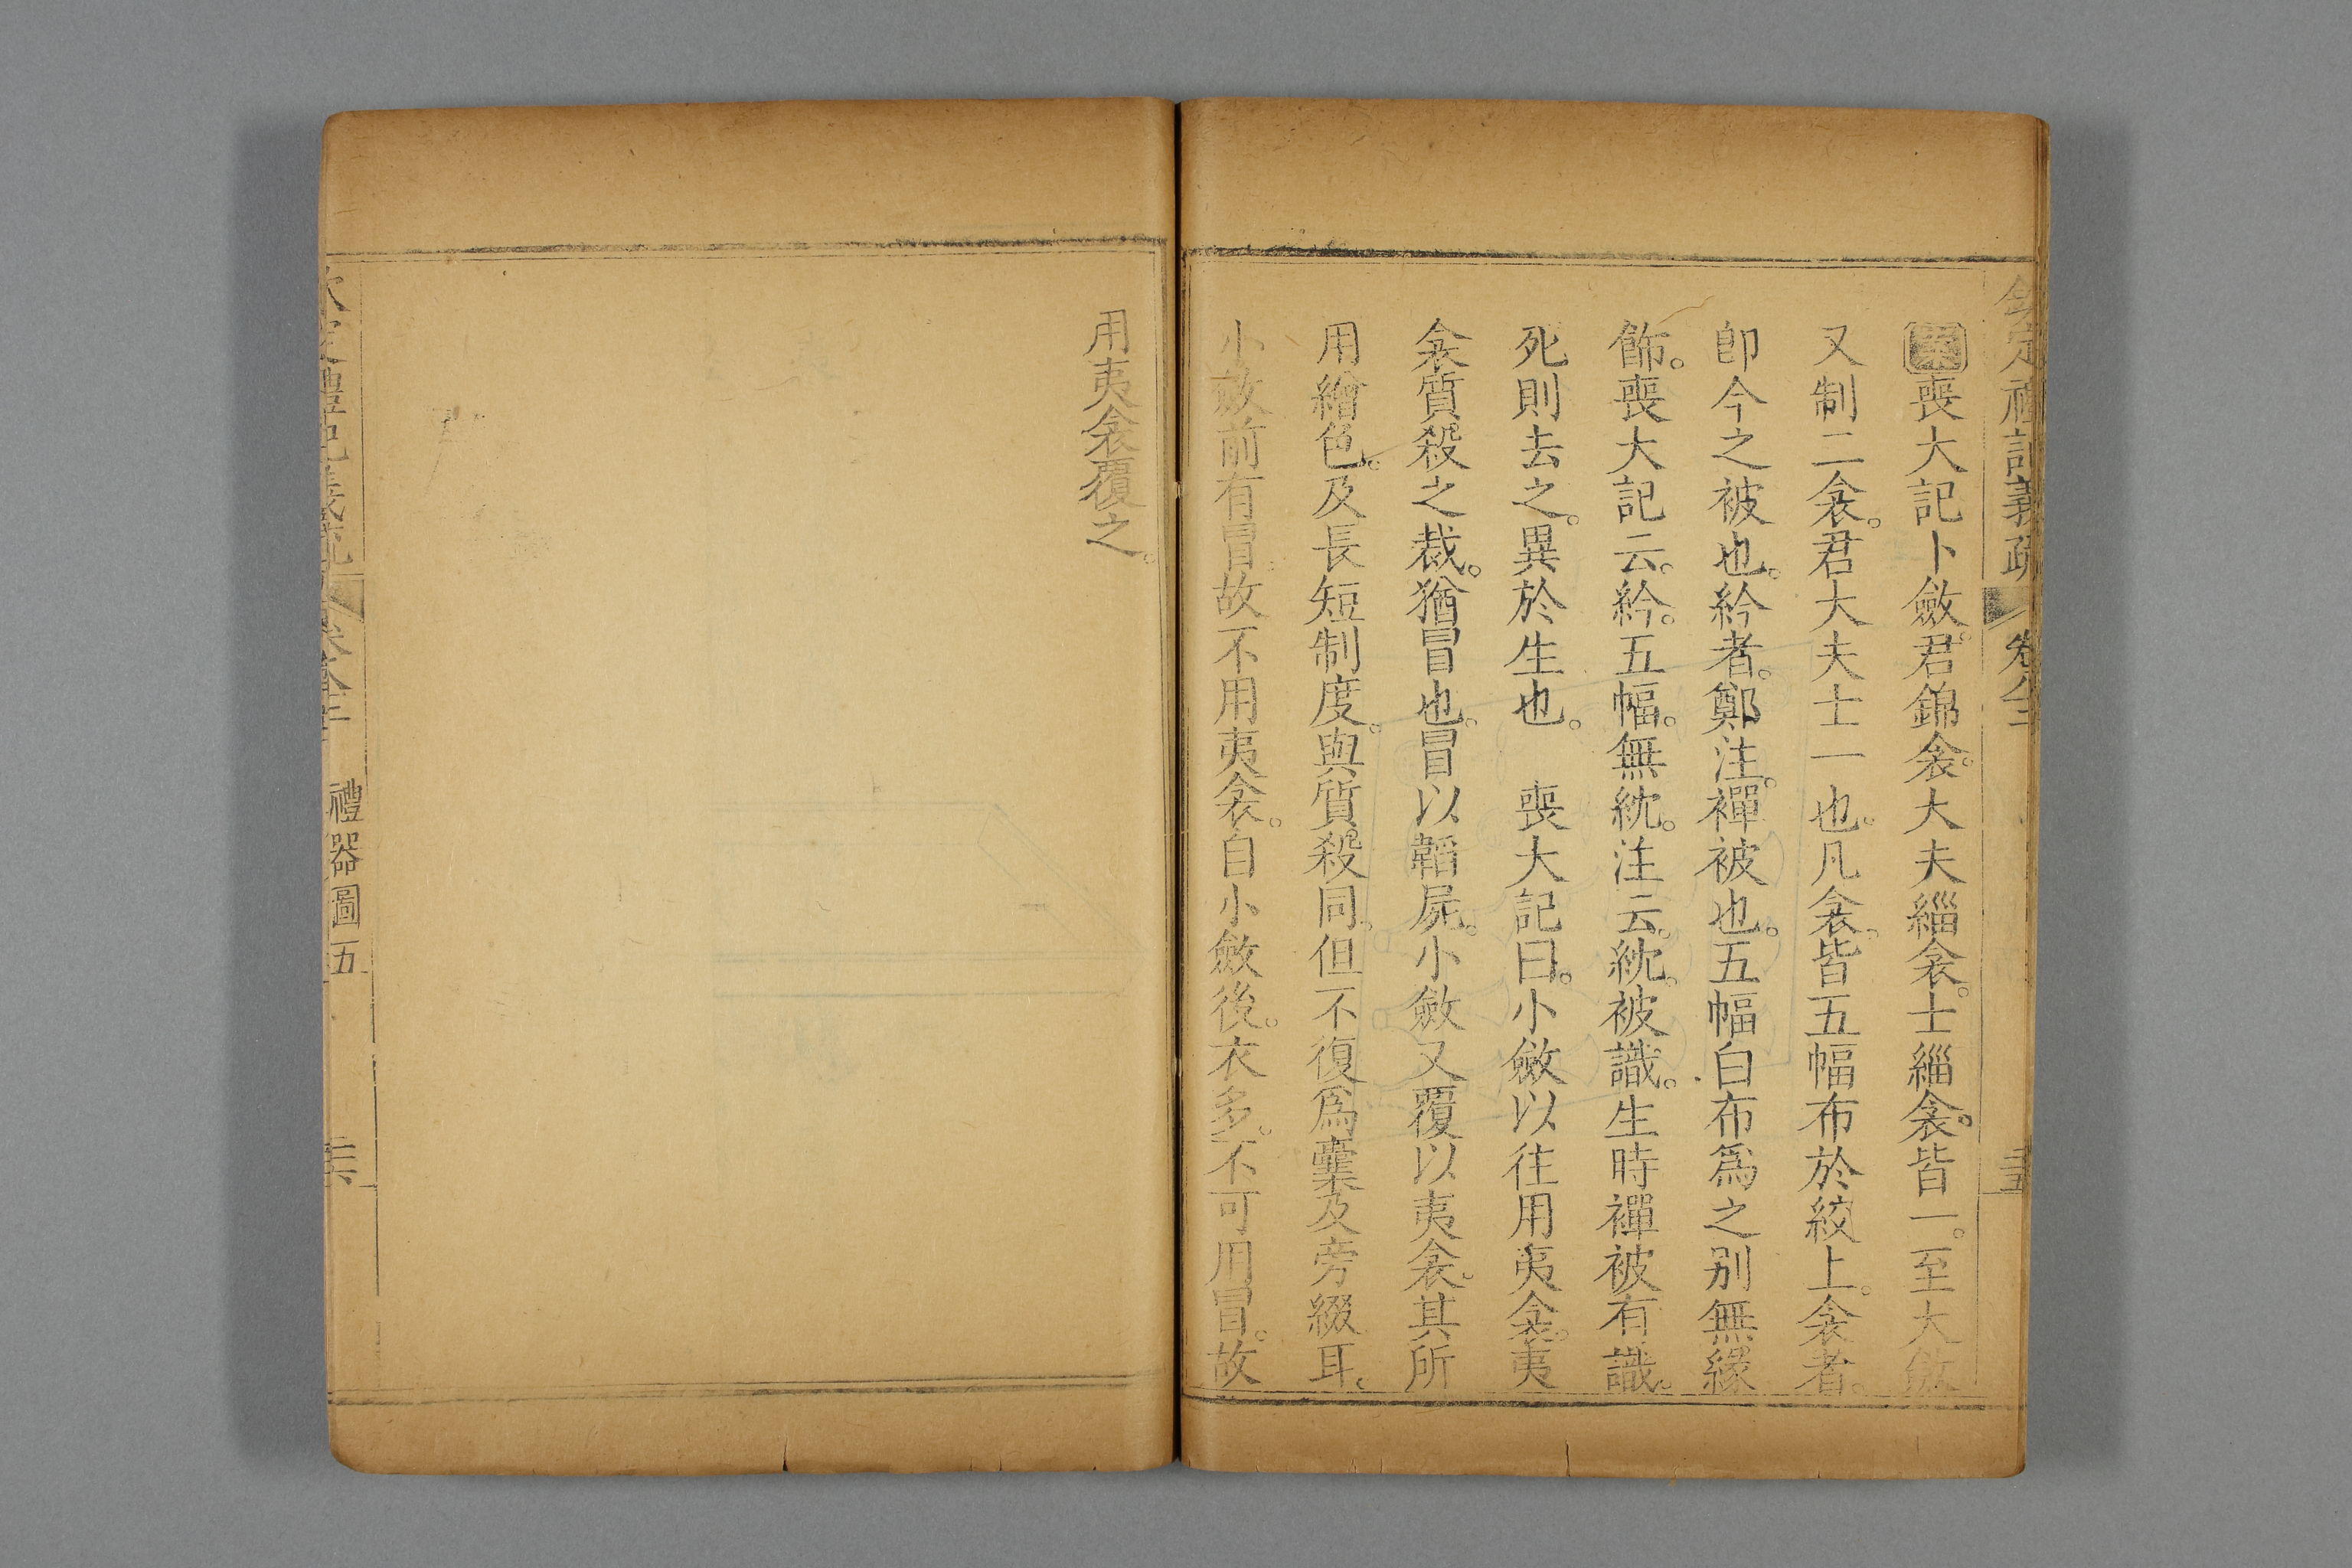 欽定禮記義疏 卷八十二 三十五
案喪大記卜斂。君錦衾。大夫緇衾。士緇衾。皆一。至大斂
又制二衾。君大夫士一也。凡衾。皆五幅布於絞上。衾者。
卽今之被也。紟者。鄭注。襌被也。五幅白布爲之别無緣
飾。喪大記云。紟。五幅。無紞。注云。紞。被識。生時襌被有識。
死則去之。異於生也。 喪大記曰。小斂以往用夷衾。夷
衾質殺之裁。猶冒也。冒以韜屍。小斂又覆以夷衾。其所
用繒色。及長短制度。與質殺同。但不復爲囊及旁綴耳。
小斂前有冒。故不用夷衾。自小斂後。衣多。不可用冒。故
用夷衾覆之。
禮器圖五